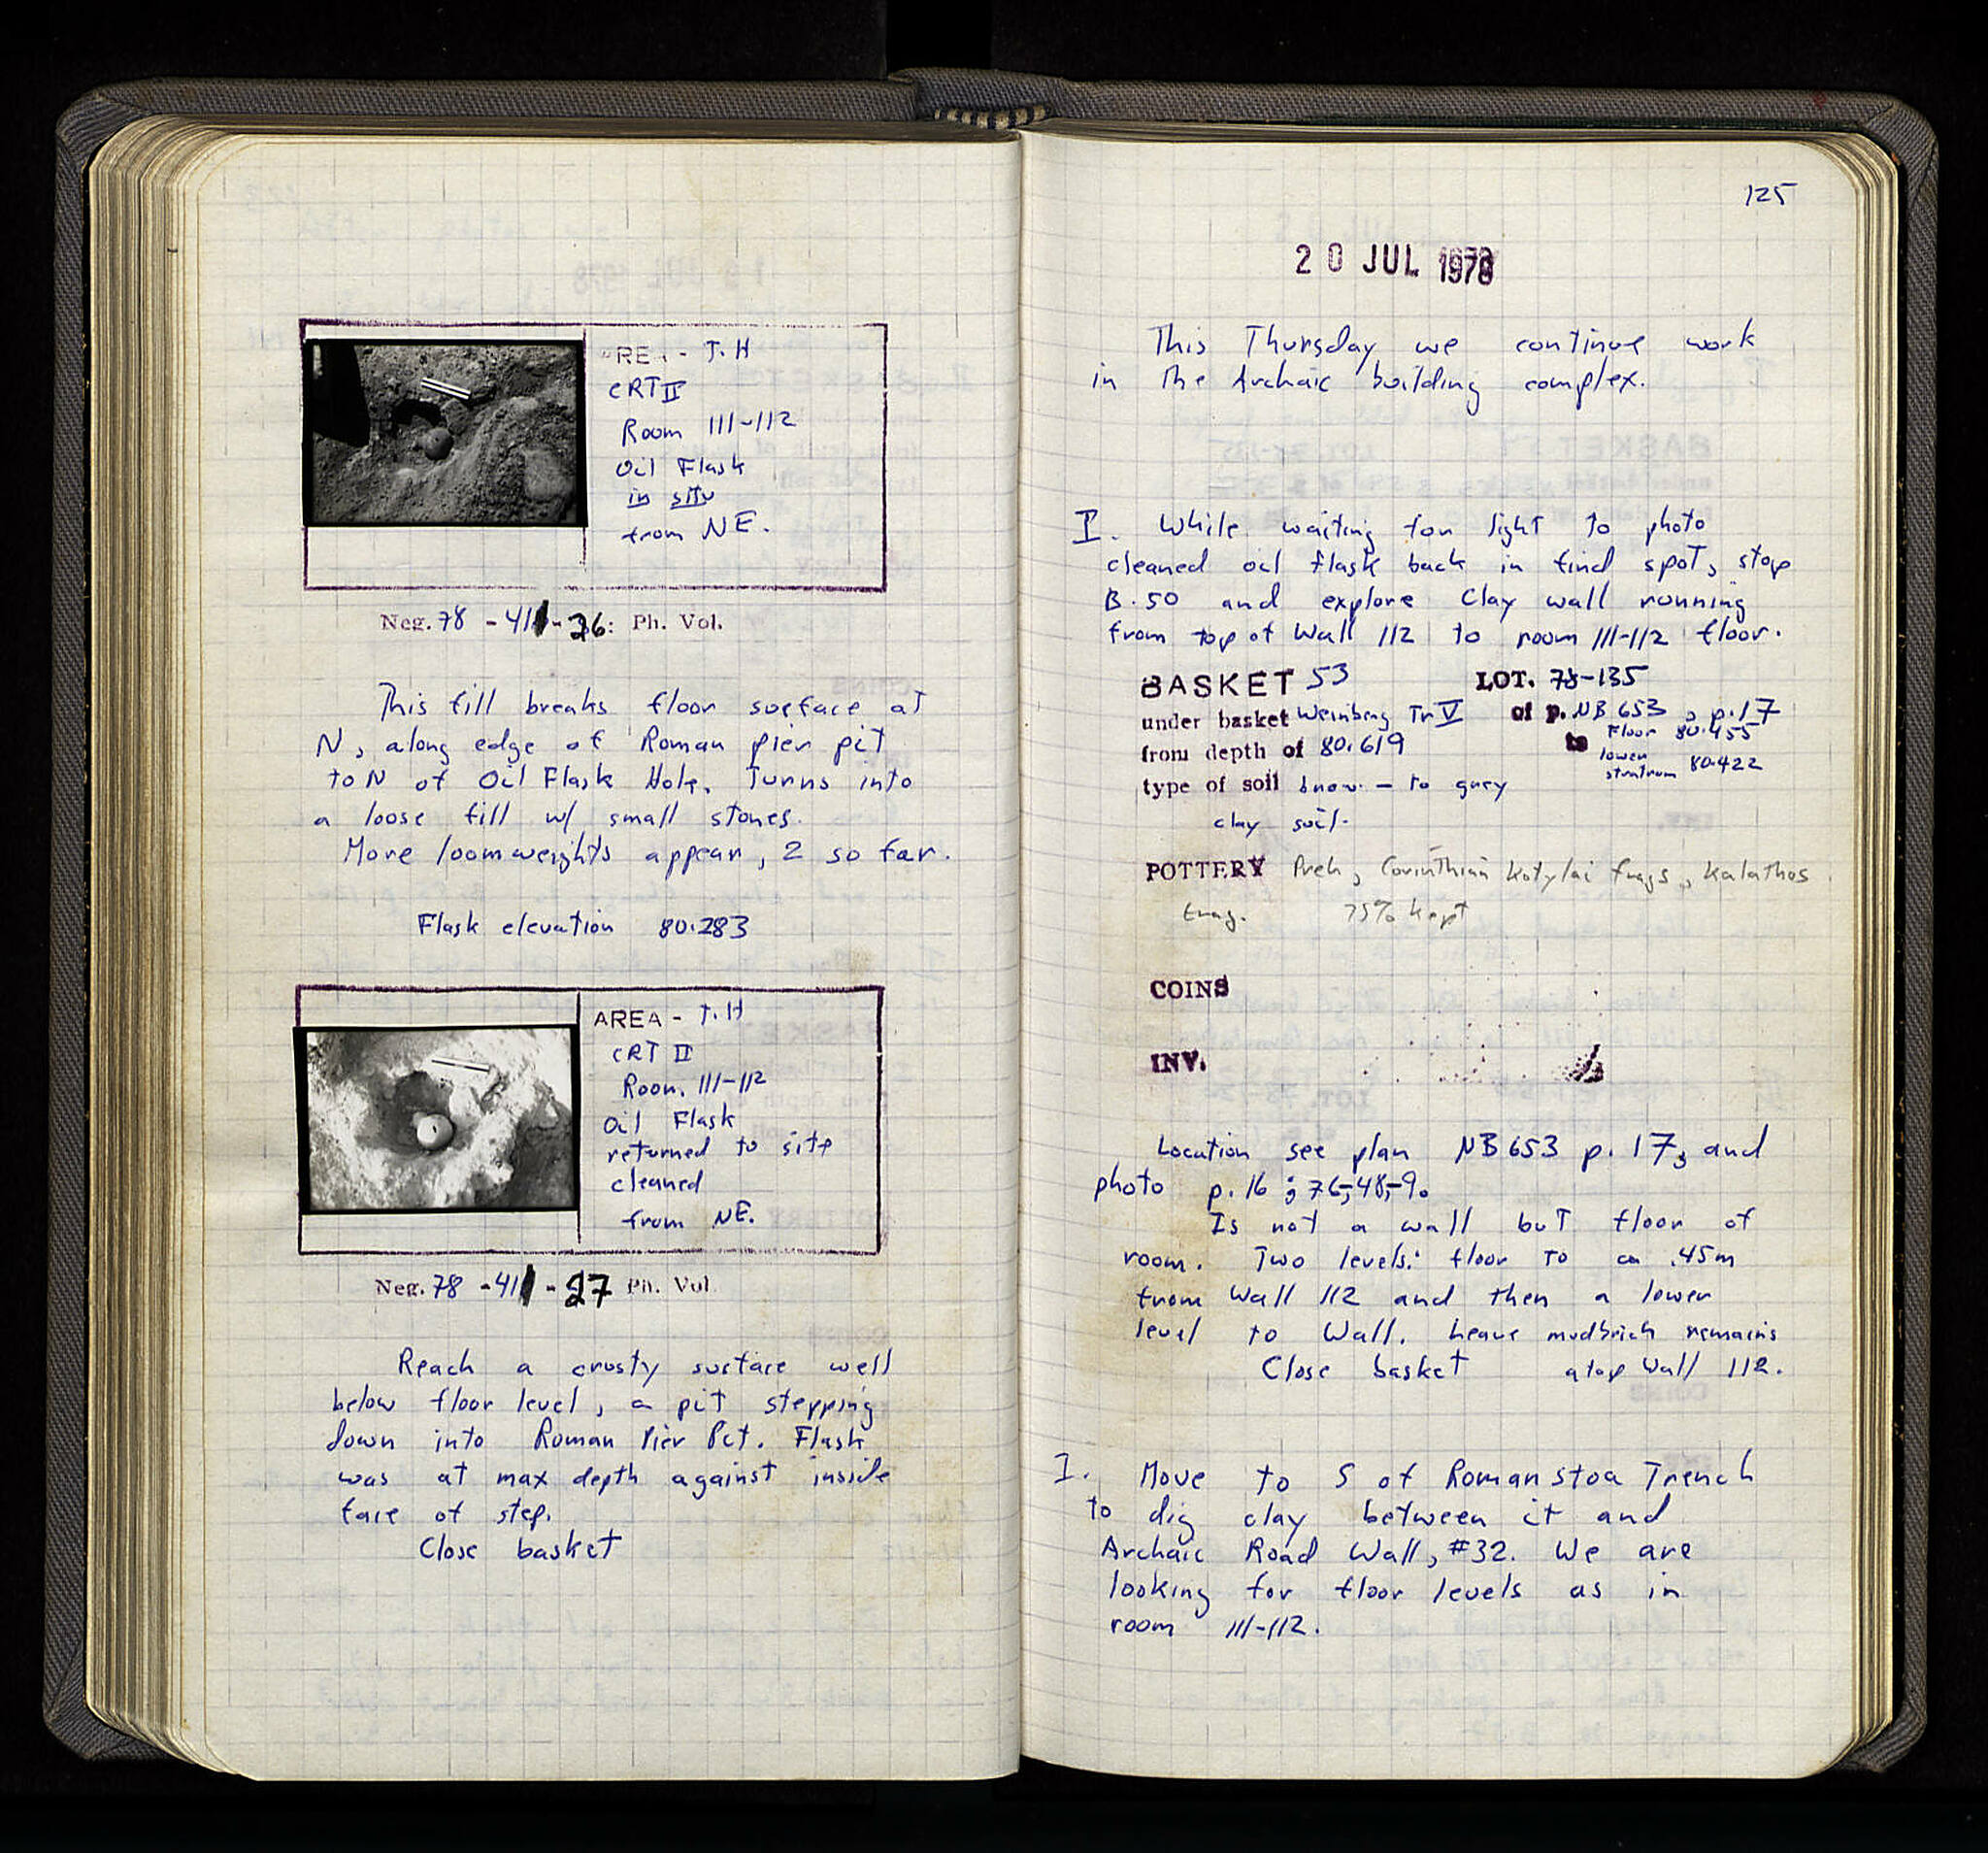 AREA - T. H
CRT II
Room 111-112
Oil Flask
in situ
from NE.
Neg. 78 - 41 - 26: Ph. Vol.
This fill breaks floor surface at
N, along edge of Roman pier pit
to N of Oil Flask Hole. Turns into
a loose fill w/ small stones.
More loomweights appear, 2 so far.
Flask elevation 80.283
AREA - T. H
CRT II
Room. 111-112
Oil Flask
returned to site
cleaned
from NE.
Neg. 78 - 41 - 27 Ph. Vol.
Reach a crusty surface well
below floor level, a pit stepping
down into Roman Pier Pit. Flask
was at max depth against inside
face of step.
Close basket
125
20 JUL 1978
This Thursday we continue work
in the Archaic building complex.
I. While waiting for light to photo
cleaned oil flask back in find spot, stop
B. 50 and explore Clay wall running
from top of Wall 112 to room 111-112 floor.
BASKET 53 LOT. 78-135
under basket Weinberg Tr V of p. NB 653, p. 17
from depth of 80.619 to Floor 80.455
lower stratum 80.422
type of soil brow. - to grey
clay soil.
POTTERY Preh, Corinthian Kotylai frags, Kalathos
frag. 75% kept
COINS
INV.
Location see plan NB 653 p. 17, and
photo p. 16; 76-48-9.
Is not a wall but floor of
room. Two levels: floor to ca .45m
from Wall 112 and then a lower
level to Wall. Leave mudbrick remains
Close basket atop Wall 112.
I. Move to S of Roman stoa Trench
to dig clay between it and
Archaic Road Wall, #32. We are
looking for floor levels as in
room 111-112.